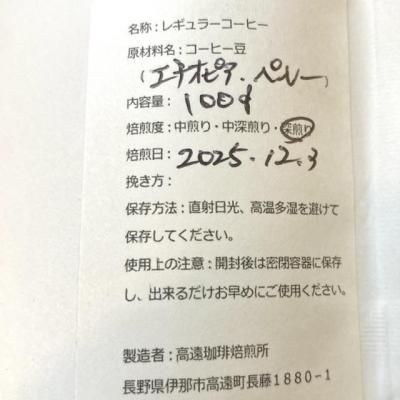 名称：レギュラーコーヒー
原材料名：コーヒー豆
(エチオピア・ペルー)
内容量：100g
焙煎度：中煎り・中深煎り・深煎り
焙煎日：2025.12.3
挽き方：
保存方法：直射日光、高温多湿を避けて
保存してください。
使用上の注意：開封後は密閉容器に保存
し、出来るだけお早めにご使用ください。
製造者：高遠珈琲焙煎所
長野県伊那市高遠町長藤1880-1